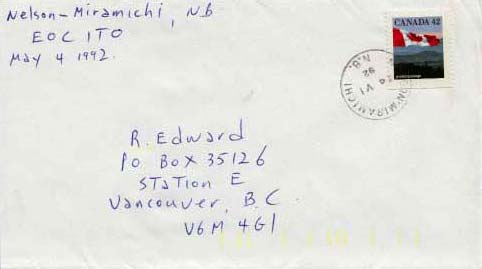 Nelson-Miramichi, NB
EOC 1TO
May 4 1992.
CANADA 42
N.B.
92
VI
MIRAMICHI
R. Edward
PO BOX 35126
STATION E
Vancouver, B.C
V6M 4G1